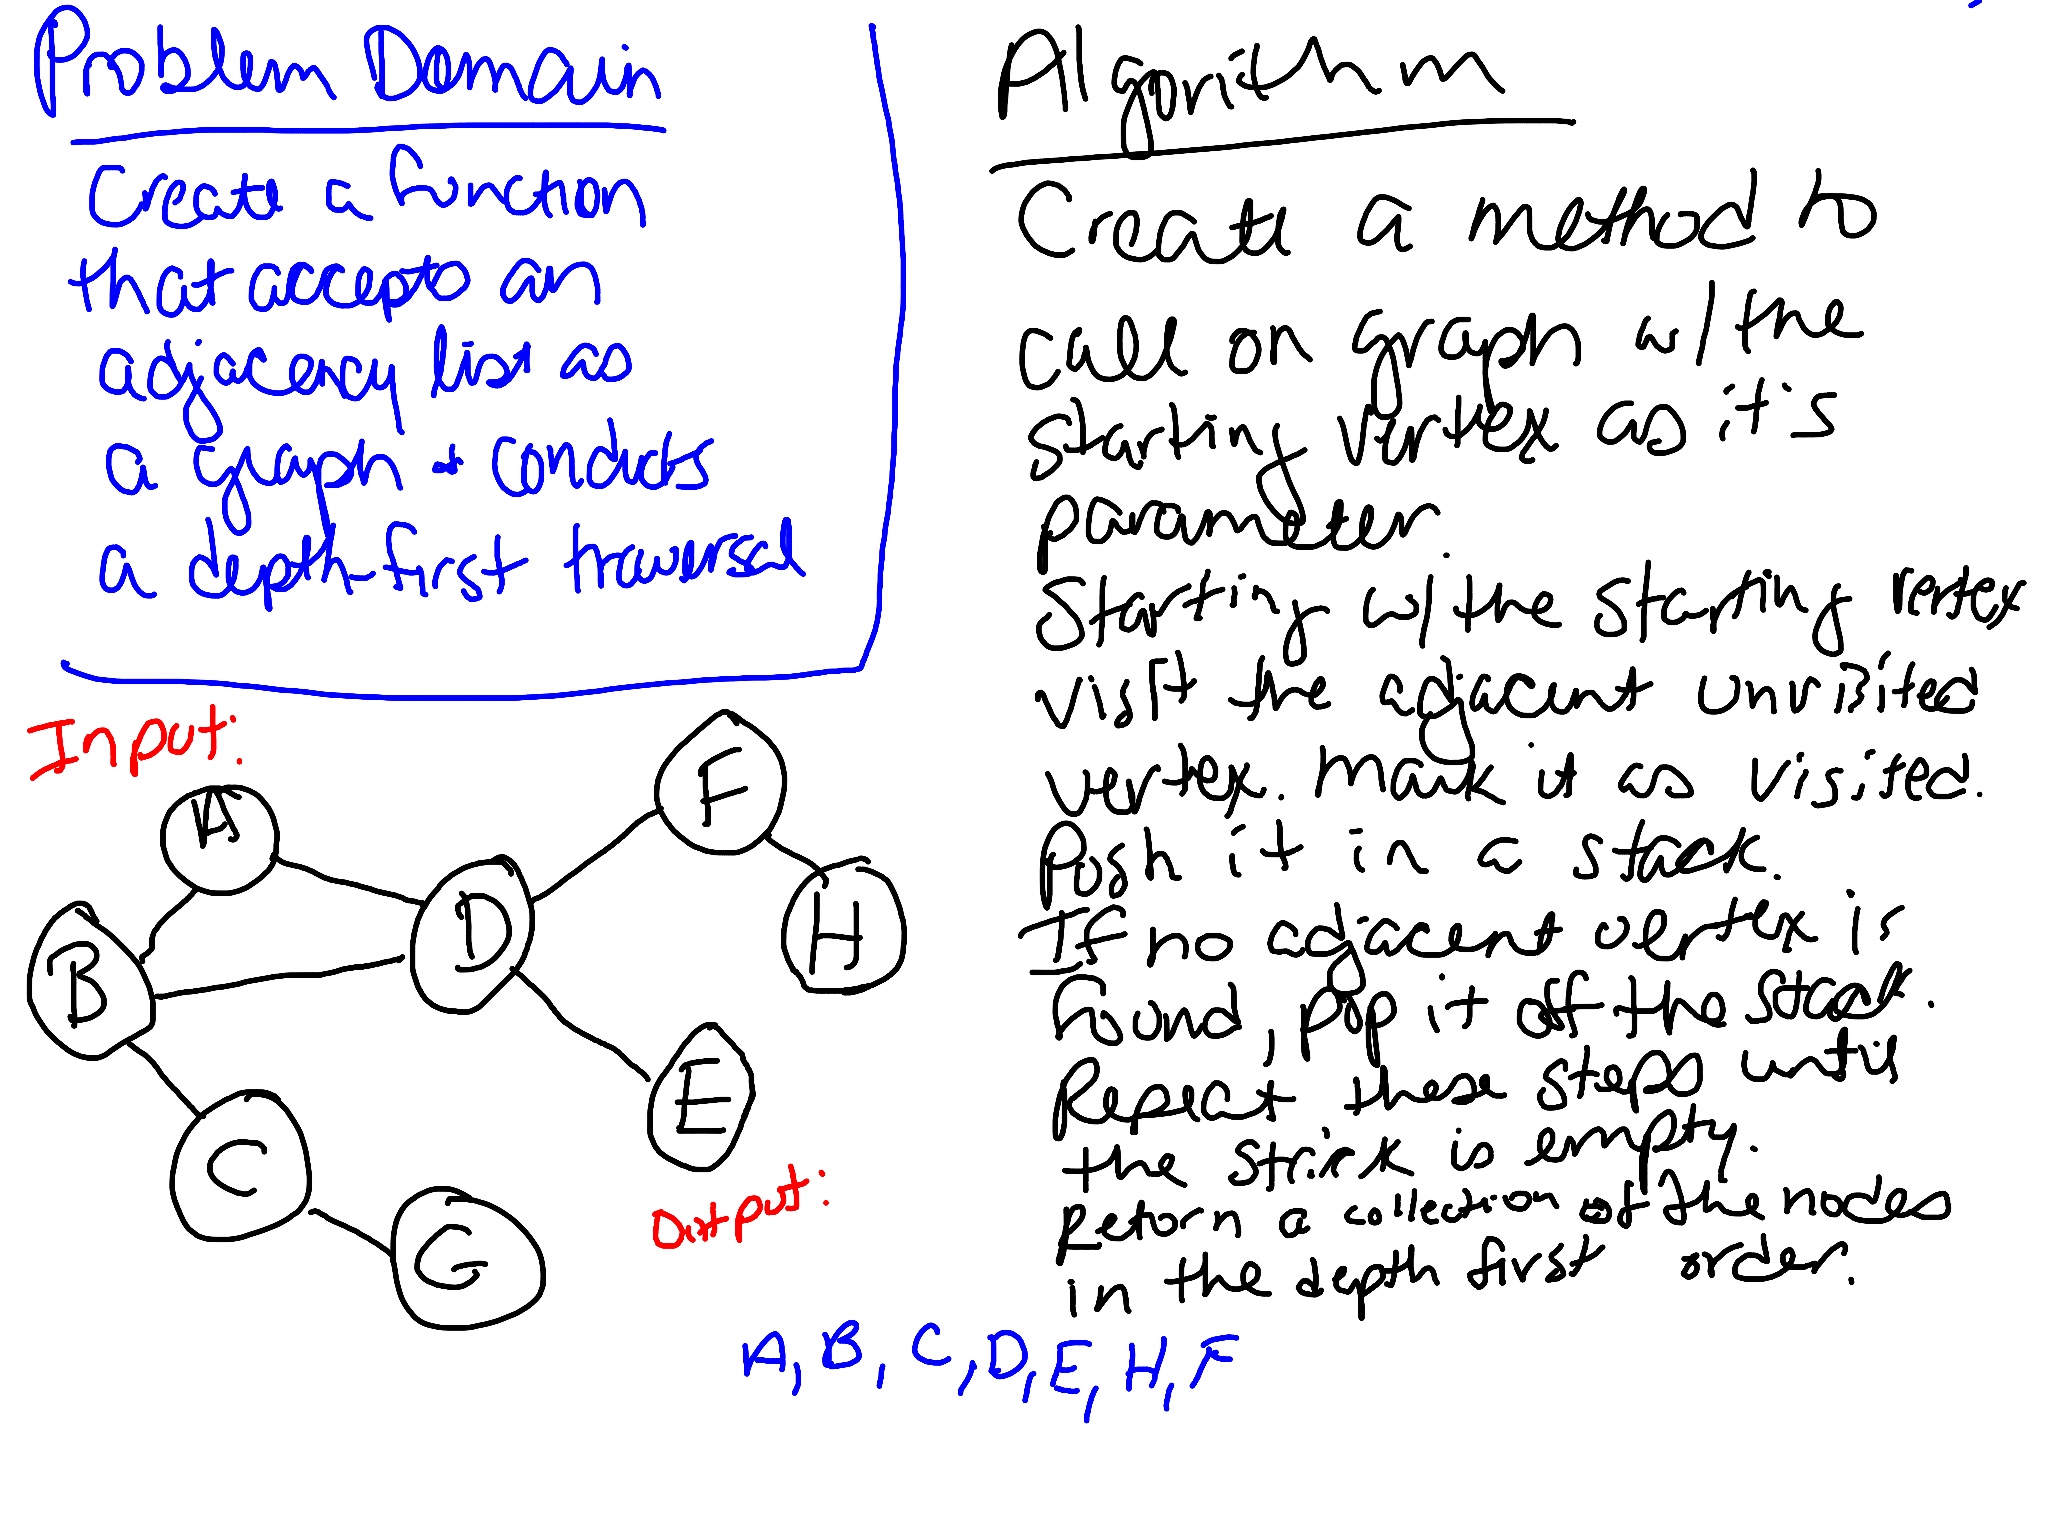 Problem Domain
Create a function
that accepts an
adjacency list as
a graph + conducts
a depth-first traversal
Input:
A
F
D
H
B
E
C
G
Output:
A, B, C, D, E, H, F
Algorithm
Create a method to
call on graph w/ the
starting vertex as it's
parameter.
Starting w/ the starting vertex
visit the adjacent unvisited
vertex. Mark it as visited.
Push it in a stack.
If no adjacent vertex is
found, pop it off the stack.
Repeat these steps until
the stack is empty.
Return a collection of the nodes
in the depth first order.